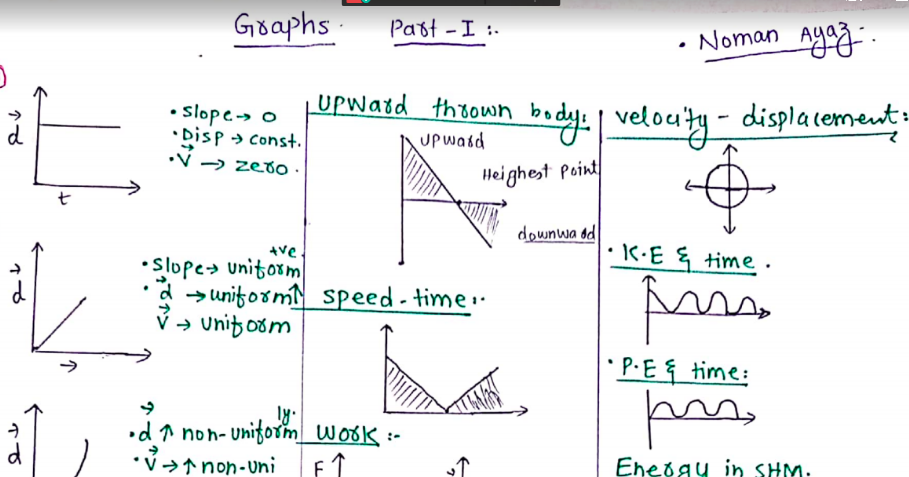 Graphs. Part-I :-
• Noman Ayaz :-
d
t
• Slope → 0
• Disp → const.
• V → zero.
d
+ve
• Slope → uniform
• d → uniform ↑
V → uniform
d
ly.
• d ↑ non-uniform
• V → ↑ non-uni
Upward thrown body:
upward
Heighest Point
downward
speed-time :-
Work :-
F ↑
velocity - displacement :
• K.E & time .
• P.E & time :
Energy in SHM.